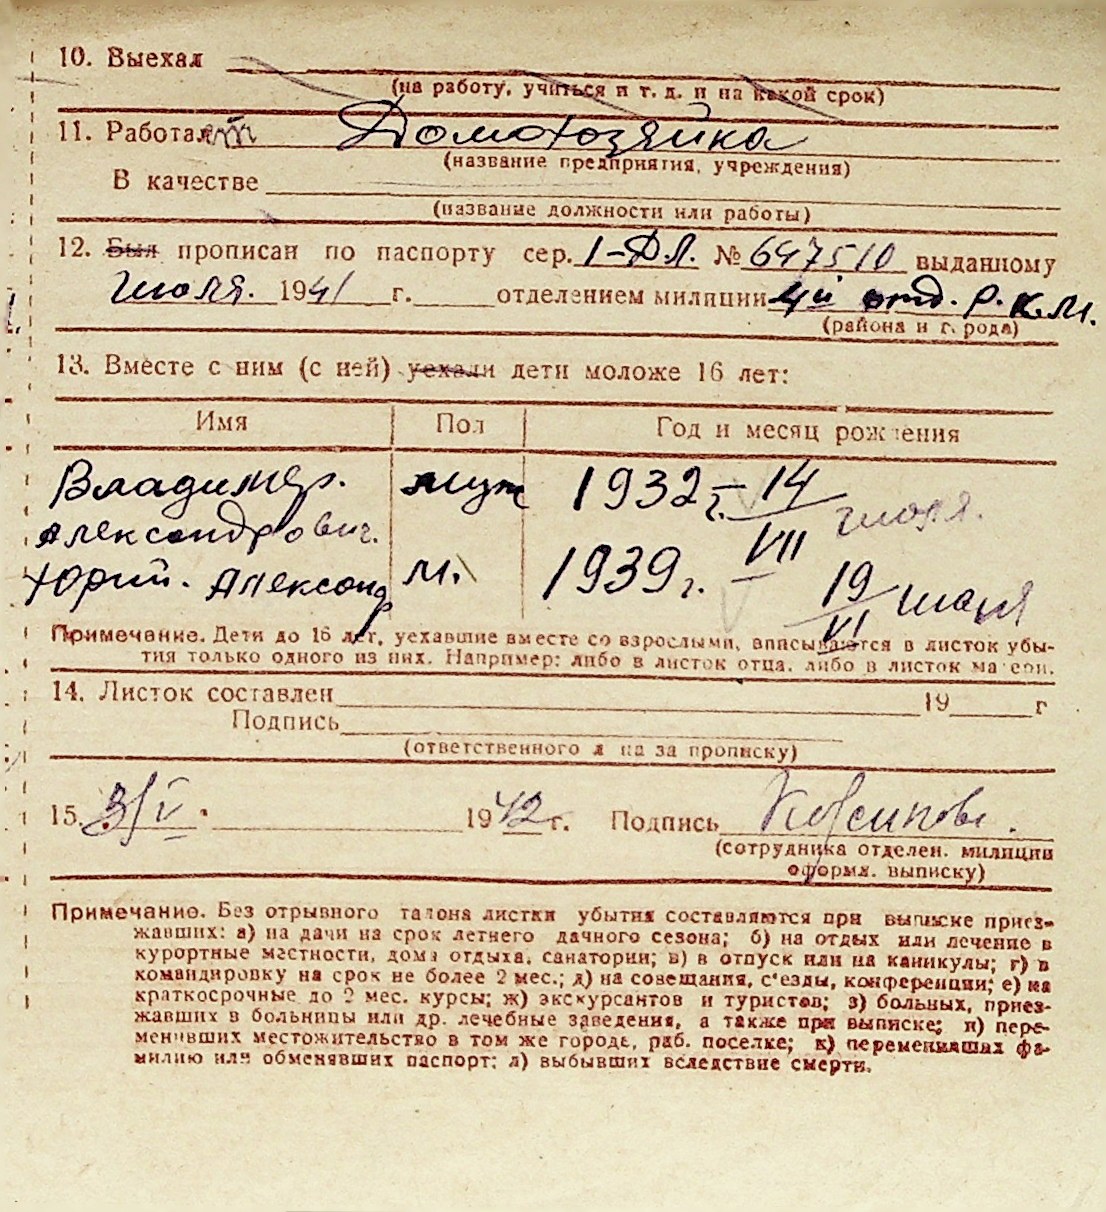 10. Выехал
(на работу, учиться и т. д. и на какой срок)
11. Работает Домохозяйка
(название предприятия, учреждения)
В качестве
(название должности или работы)
12. Был прописан по паспорту сер. I-ДЛ. № 647510 выданному
Июля. 1941 г. отделением милиции 4й отд. Р.К.М.
(района и города)
13. Вместе с ним (с ней) уехали дети моложе 16 лет:
Имя Пол Год и месяц рождения
Владимир. муж 1932 г. – 14/VII июля.
Александрович.
Юрий. Александр м. 1939 г. – 19/VI июня
Примечание. Дети до 16 лет, уехавшие вместе со взрослыми, вписываются в листок убы-
тия только одного из них. Например: либо в листок отца, либо в листок матери.
14. Листок составлен 19 г
Подпись
(ответственного лица за прописку)
15. 3/V 1942 г. Подпись
(сотрудника отделен. милиции
оформл. выписку)
Примечание. Без отрывного талона листки убытия составляются при выписке приез-
жавших: а) на дачи на срок летнего дачного сезона; б) на отдых или лечение в
курортные местности, дома отдыха, санатории; в) в отпуск или на каникулы; г) в
командировку на срок не более 2 мес.; д) на совещания, с'езды, конференции; е) на
краткосрочные до 2 мес. курсы; ж) экскурсантов и туристов; з) больных, приез-
жавших в больницы или др. лечебные заведения, а также при выписке; и) пере-
менивших местожительство в том же городе, раб. поселке; к) переменивших фа-
милию или обменявших паспорт; л) выбывших вследствие смерти.